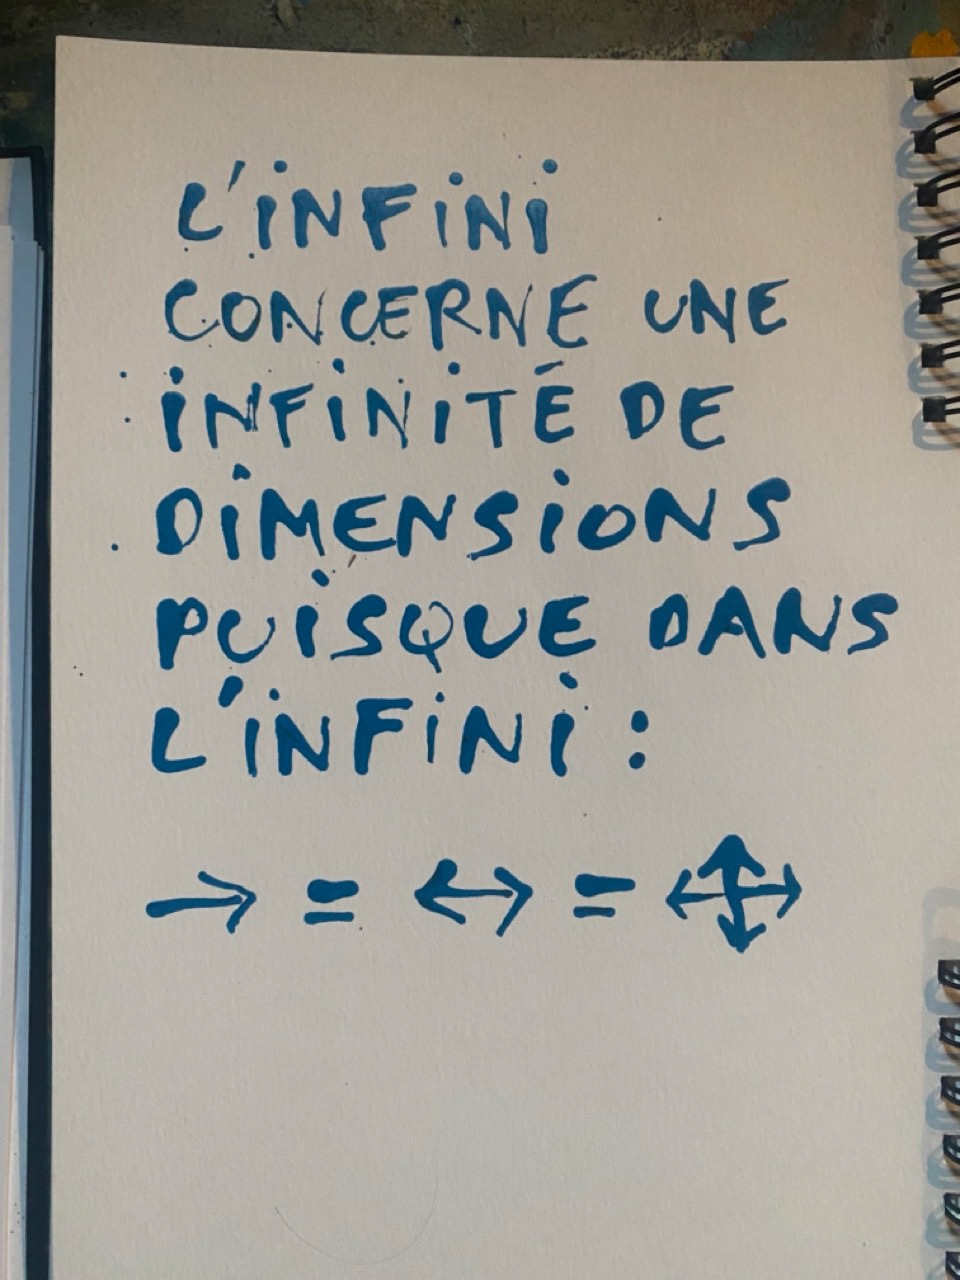 L'iNFiNi
CONCERNE UNE
iNFiNiTÉ DE
DiMENSiONS
PUiSQUE DANS
L'iNFiNi :
→ = ↔ = ↔↕